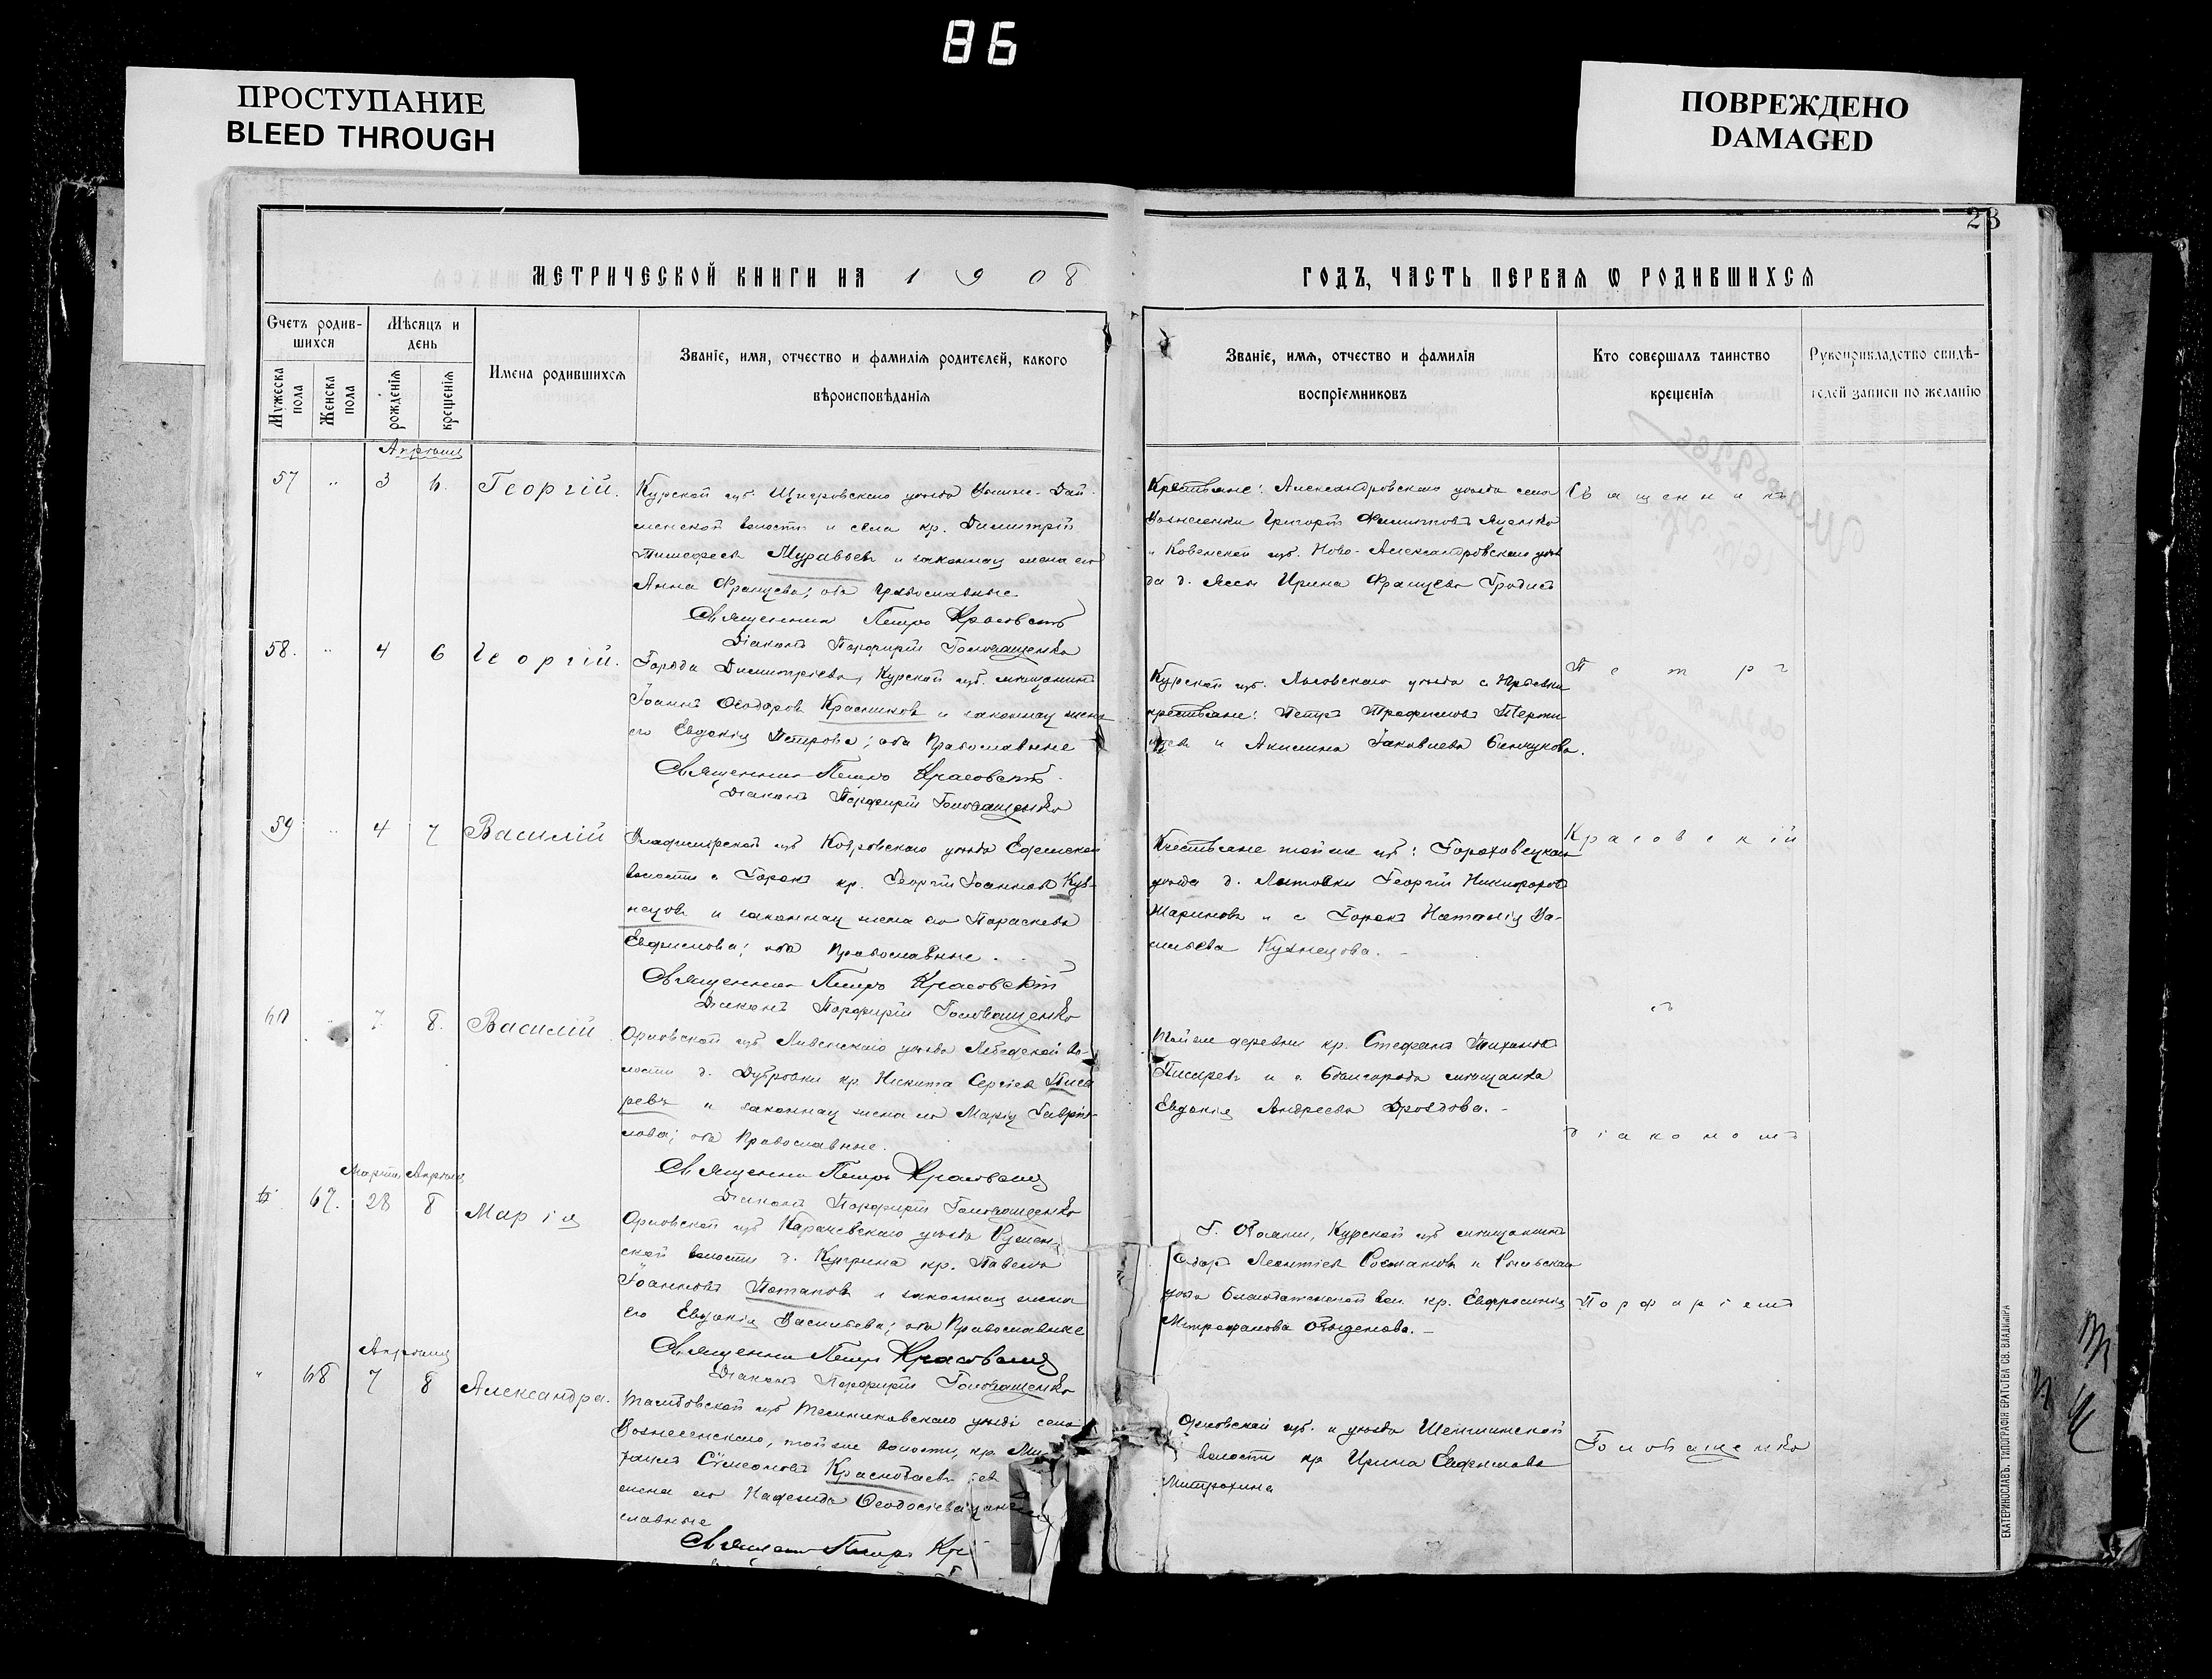 86
ПРОСТУПАНИЕ
BLEED THROUGH
ПОВРЕЖДЕНО
DAMAGED
23
МЕТРИЧЕСКОЙ КНИГИ НА 1908
ГОДЪ, ЧАСТЬ ПЕРВАЯ Ѡ РОДИВШИХСЯ
Счетъ родив-
шихся
Мѣсяцъ и
день
Мужеска
пола
Женска
пола
рожденія
крещенія
Имена родившихся
Званіе, имя, отчество и фамилія родителей, какого
вѣроисповѣданія
Званіе, имя, отчество и фамилія
воспріемниковъ
Кто совершалъ таинство
крещенія
Рукоприкладство свидѣ-
телей записи по желанію
Апрѣль
57 " 3 6. Георгій.
Курской губ. Щигровскаго уѣзда
менской волости и села кр. Димитрій
Тимофеевъ Муравьевъ и законная жена его
Анна Францева; оба православные.
Священникъ Петръ Красовскій
Діаконъ Порфирій Головащенко
Крестьяне: Александровскаго уѣзда села
Вознесенки Григорій Филиповъ Яценко
и Ковенской губ. Ново-Александровскаго уѣз
да д. Ирина Францева
58. " 4 6 Георгій.
Города Димитріева, Курской губ. мѣщанинъ
Іоаннъ Ѳеодоровъ Красниковъ и законная жена
его Евдокія Петрова; оба Православные
Священникъ Петръ Красовскій.
Діаконъ Порфирій Головащенко
Курской губ. Льговскаго уѣзда с.
крестьяне: Петръ Трофимовъ
и Акилина Іаковлева
59 " 4 7 Василій
Владимірской губ. Ковровскаго уѣзда
волости с. Горокъ кр. Георгій Іоанновъ Куз-
нецовъ и законная жена его Параскева
Евфимова; оба Православные.
Священникъ Петръ Красовскій
Діаконъ Порфирій Головащенко
Крестьяне той же губ: Гороховецкаго
уѣзда д. Георгій Никифоровъ
Жариновъ и с. Горокъ Наталія Ва-
сильева Кузнецова. -
60 " 7 8. Василій
Орловской губ. Ливенскаго уѣзда во-
лости д. Дубровки кр. Никита Сергіевъ Писа
ревъ и законная жена его Марія Гаврі-
лова; оба Православные.
Священникъ Петръ Красовскій
Діаконъ Порфирій Головащенко
Той же деревни кр. Стефанъ Тихоновъ
Писаревъ и г. Бѣлгорода мѣщанка
Евдокія Андреева Дроздова. -
Марта Апрѣль
67. 28 8 Марія
Орловской губ. Карачевскаго уѣзда
ской волости д. кр. Павелъ
Іоанновъ Потаповъ и законная жена
его Евдокія Васильева; оба Православные
Священникъ Петръ Красовскій
Діаконъ Порфирій Головащенко
Г. Обояни, Курской губ. мѣщанинъ
Леонтіевъ и Рыльскаго
уѣзда вол. кр. Евфросинія
Митрофанова
Апрѣля
" 68 7 8 Александра.
Тамбовской губ. Темниковскаго уѣзда села
Вознесенскаго, той же волости, кр. Ми-
хаилъ Сімеоновъ
жена его Надежда Ѳеодосіева
славные
Священникъ Петръ Кр
Орловской губ. и уѣзда
волости кр. Ирина Евфимова
Митрохина
Священникъ
Петръ
Красовскій
съ
діакономъ
Порфиріемъ
Головащенко
ЕКАТЕРИНОСЛАВЪ. ТИПОГРАФІЯ БРАТСТВА СВ. ВЛАДИМІРА